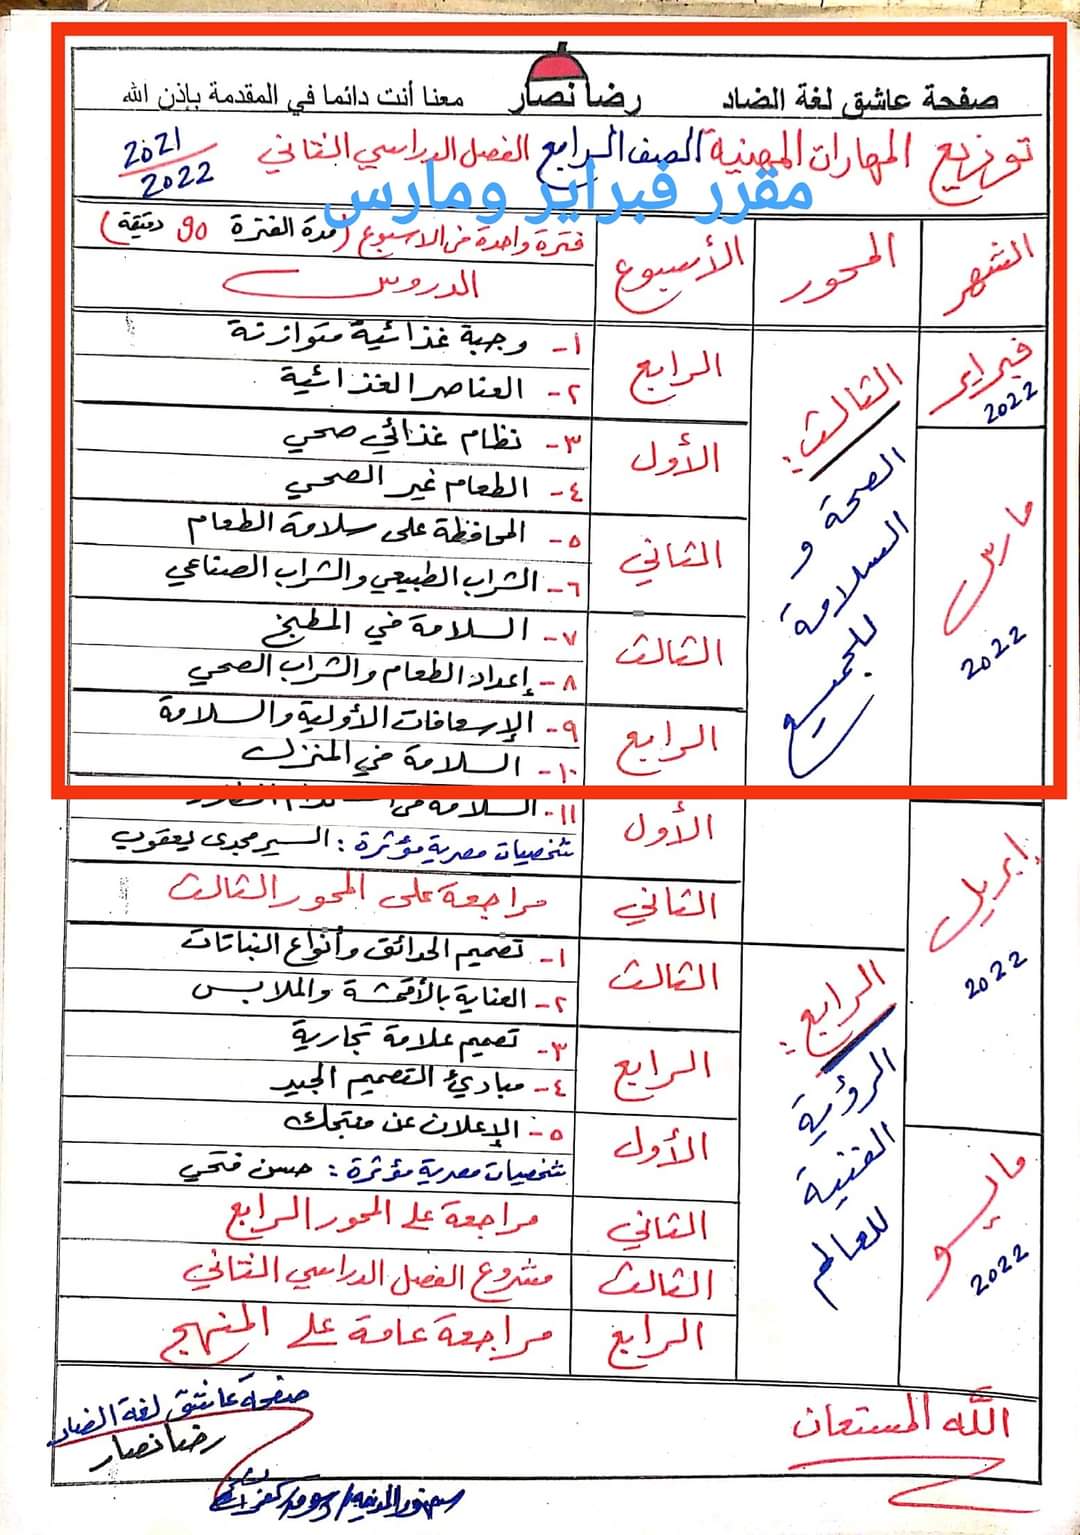 صفحة عاشق لغة الضاد رضا نصار معنا أنت دائما في المقدمة بإذن الله
توزيع المهارات المهنية الصف الرابع الفصل الدراسي الثاني 2021 2022
مقرر فبراير ومارس
الشهر المحور الأسبوع فترة واحدة في الاسبوع (مدة الفترة 90 دقيقة)
الدروس
فبراير 2022 الثالث: الصحة و السلامة للجميع الرابع ١- وجبة غذائية متوازنة
٢- العناصر الغذائية
مارس 2022 الأول ٣- نظام غذائي صحي
٤- الطعام غير الصحي
الثاني ٥- المحافظة على سلامة الطعام
٦- الشراب الطبيعي والشراب الصناعي
الثالث ٧- السلامة في المطبخ
٨- إعداد الطعام والشراب الصحي
الرابع ٩- الإسعافات الأولية والسلامة
١٠- السلامة في المنزل
إبريل 2022 الأول ١١- السلامة في
شخصيات مصرية مؤثرة: السير مجدى يعقوب
الثاني مراجعة على المحور الثالث
الرابع: الرؤية الفنية للعالم الثالث ١- تصميم الحدائق وأنواع النباتات
٢- العناية بالأقمشة والملابس
الرابع ٣- تصميم علامة تجارية
٤- مبادئ التصميم الجيد
مايو 2022 الأول ٥- الإعلان عن منتجك
شخصيات مصرية مؤثرة: حسن فتحي
الثاني مراجعة على المحور الرابع
الثالث مشروع الفصل الدراسي الثاني
الرابع مراجعة عامة على المنهج
الله المستعان
صفحة عاشق لغة الضاد
رضا نصار